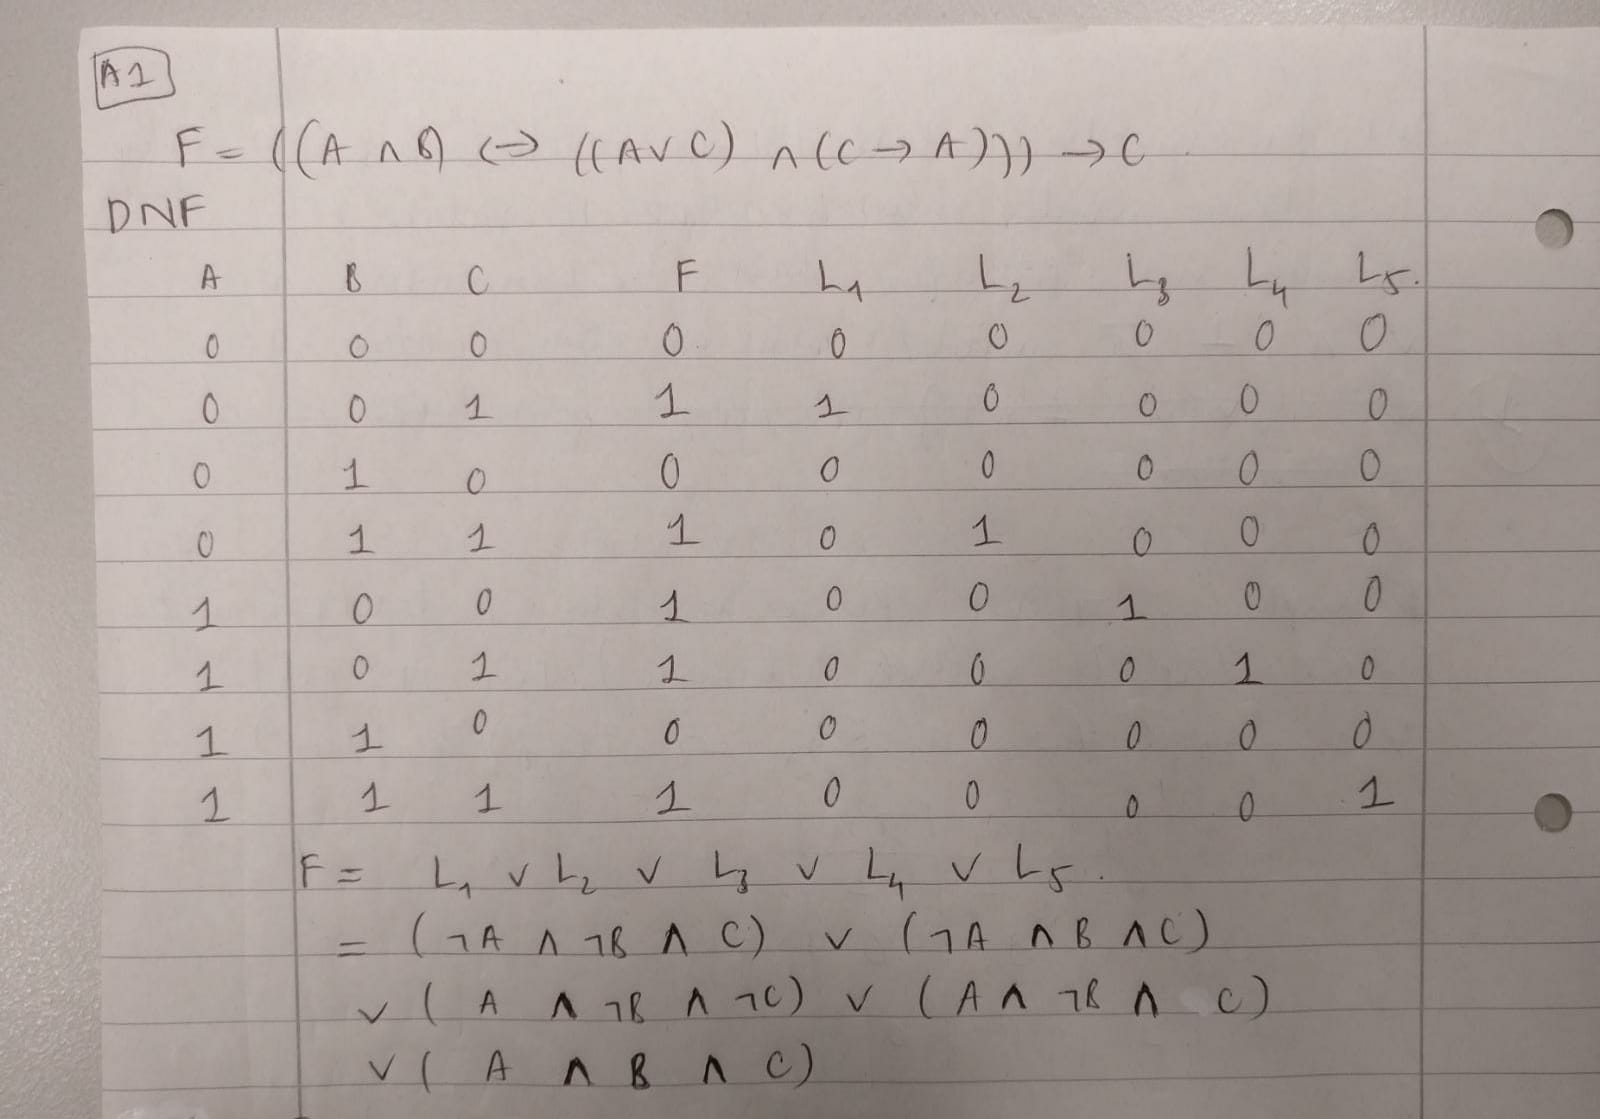 A1
F = ((A ∧ B) ↔ ((A ∨ C) ∧ (C → A))) → C
DNF
A B C F L₁ L₂ L₃ L₄ L₅.
0 0 0 0 0 0 0 0 0
0 0 1 1 1 0 0 0 0
0 1 0 0 0 0 0 0 0
0 1 1 1 0 1 0 0 0
1 0 0 1 0 0 1 0 0
1 0 1 1 0 0 0 1 0
1 1 0 0 0 0 0 0 0
1 1 1 1 0 0 0 0 1
F = L₁ ∨ L₂ ∨ L₃ ∨ L₄ ∨ L₅.
= (¬A ∧ ¬B ∧ C) ∨ (¬A ∧ B ∧ C)
∨ ( A ∧ ¬B ∧ ¬C) ∨ (A ∧ ¬B ∧ C)
∨ ( A ∧ B ∧ C)